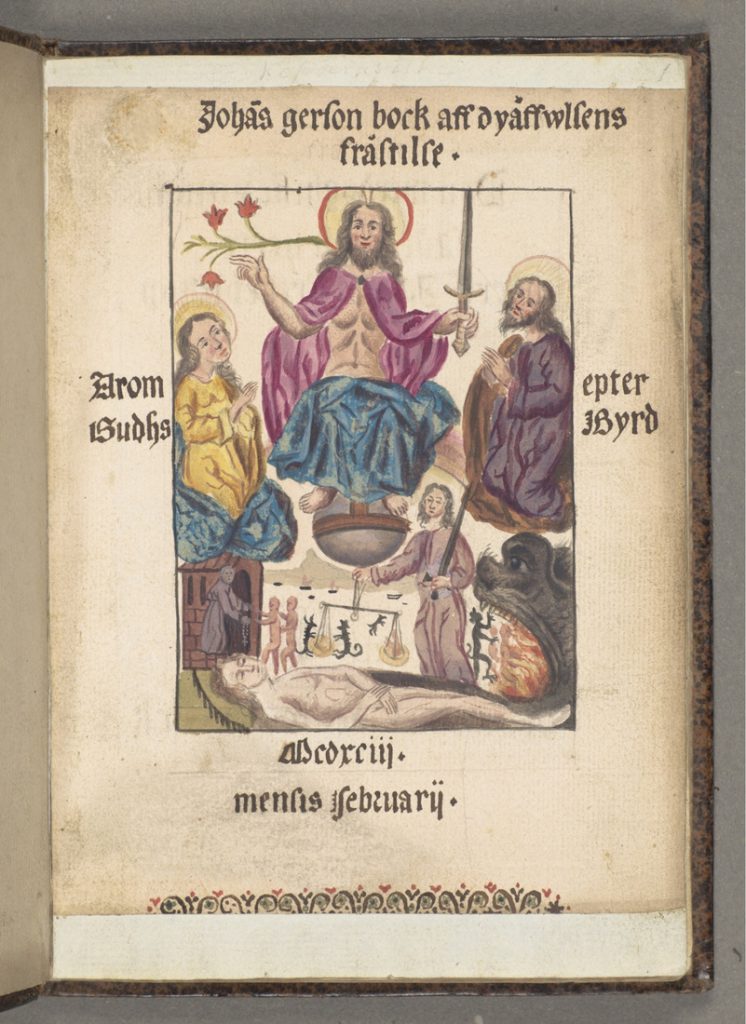 Johās gerson bock aff dyäffwlsens
frästilse.
Arom epter
Gudhs Byrd
Mcdxciij.
mensis februarij.